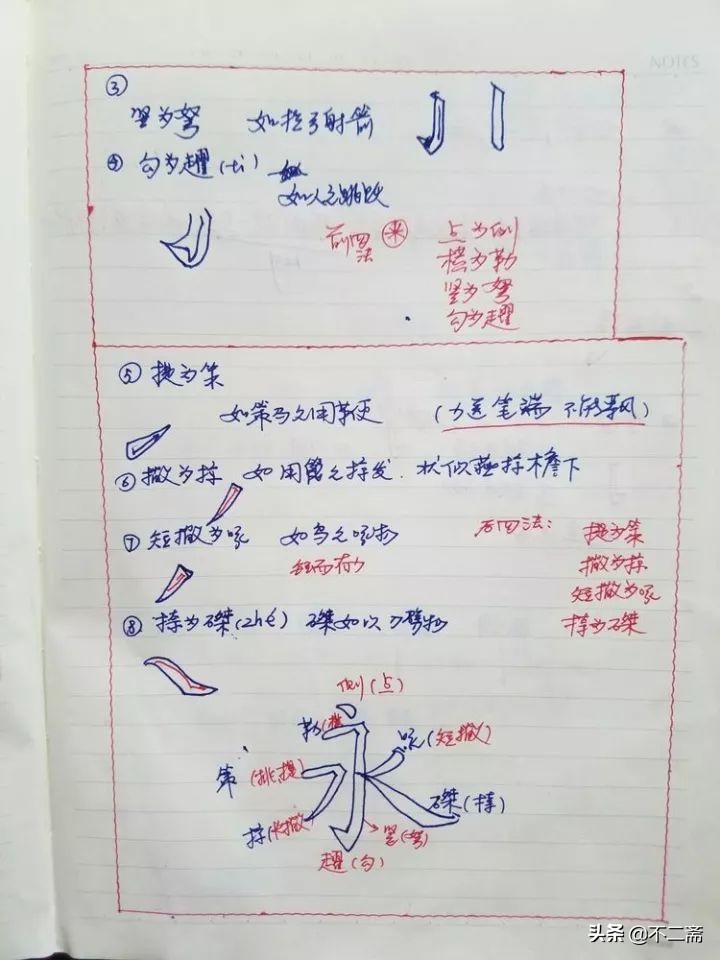 NOTES
③
竖为弩 如挽弓射箭
④ 勾为趯(tì)
如人之踢
前四法 点为侧
横为勒
竖为弩
勾为趯
⑤ 提为策
如策马之用鞭 (力送笔端 不能飘)
⑥ 撇为掠 如用篦之掠发.状似燕掠檐下
⑦ 短撇为啄 如鸟之啄物
后四法: 提为策
撇为掠
短撇为啄
捺为磔
⑧ 捺为磔(zhé) 磔如以刀劈物
侧(点)
勒(横
啄(短撇)
策(挑提)
磔(捺)
掠(长撇)
竖(弩)
趯(勾)
永
头条 @不二斋